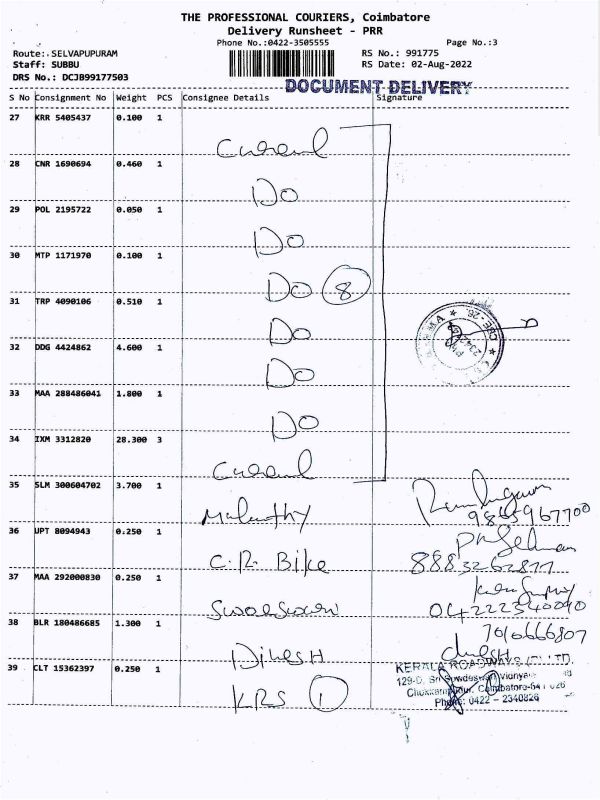 THE PROFESSIONAL COURIERS, Coimbatore
Delivery Runsheet - PRR
Phone No.:0422-3505555
Page No.:3
Route: SELVAPUPURAM
RS No.: 991775
Staff: SUBBU
RS Date: 02-Aug-2022
DRS No.: DCJB99177503
DOCUMENT DELIVERY
S No Consignment No Weight PCS Consignee Details Signature
27 KRR 5405437 0.100 1
28 CNR 1690694 0.460 1 Do
29 POL 2195722 0.050 1 Do
30 MTP 1171970 0.100 1 Do 8
31 TRP 4090106 0.510 1 Do
32 DDG 4424862 4.600 1 Do
33 MAA 288486041 1.800 1 Do
34 IXM 3312820 28.300 3
35 SLM 300604702 3.700 1 9865967700
36 UPT 8094943 0.250 1 C.R. Bike 8883262877
37 MAA 292000830 0.250 1 04222340090
38 BLR 180486685 1.300 1 Dinesh 7010666807
39 CLT 15362397 0.250 1 KRS 1
KERALA ROADWAYS
129-D, Sri
Coimbatore-641 026
Phone: 0422 - 2340826